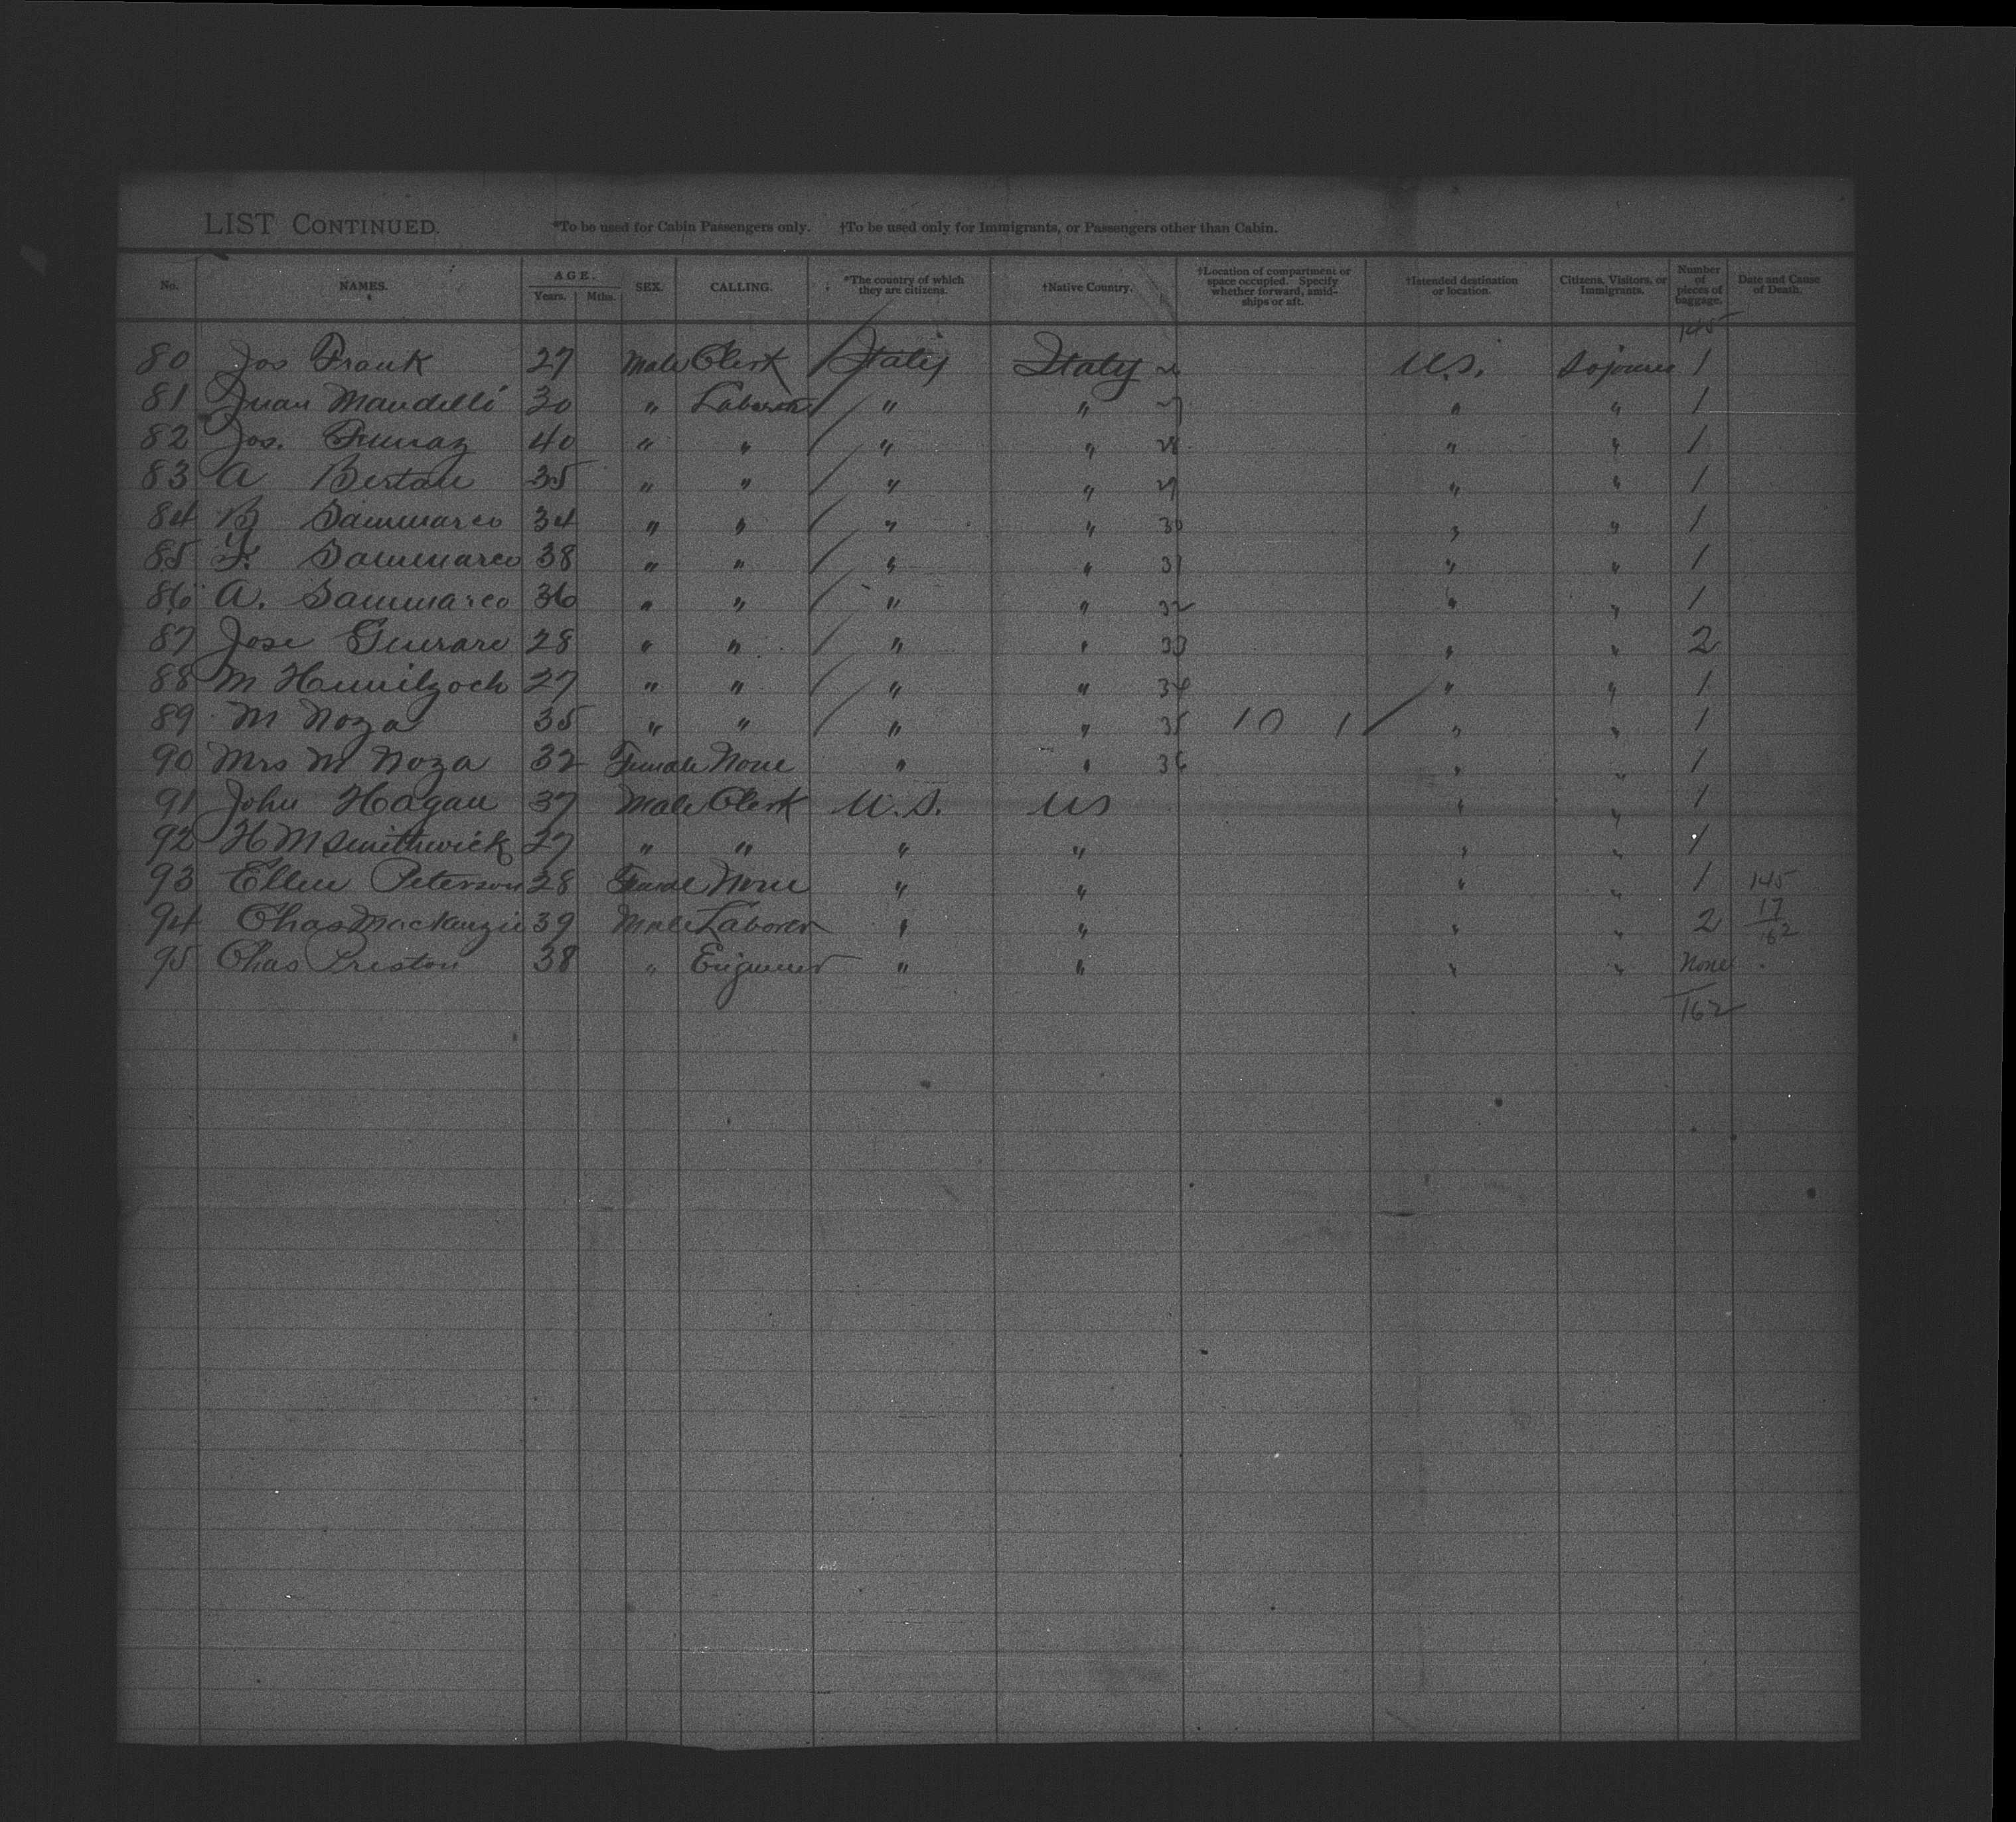 LIST CONTINUED. *To be used for Cabin Passengers only. †To be used only for Immigrants, or Passengers other than Cabin.
No. NAMES. AGE. Years. Mths. SEX. CALLING. *The country of which they are citizens. †Native Country. †Location of compartment or space occupied. Specify whether forward, amidships or aft. †Intended destination or location. Citizens, Visitors, or Immigrants. Number of pieces of baggage. Date and Cause of Death.
145
80 Jos Frank 27 Male Clerk Italy Italy U.S. Sojourn 1
81 Juan Mandelli 30 " Laborer " " 27 " " 1
82 Jos. 40 " " " " 28 " " 1
83 A 35 " " " " 29 " " 1
84 B Sammarco 34 " " " " 30 " " 1
85 F. Sammarco 38 " " " " 31 " " 1
86 A. Sammarco 36 " " " " 32 " " 1
87 Jose 28 " " " " 33 " " 2
88 M 27 " " " " 34 " " 1
89 M Noza 35 " " " " 35 10 1 " " 1
90 Mrs M Noza 32 Female None " " 36 " " 1
91 John Hagan 37 Male Clerk U.S. US " " 1
92 H M Smithwick 27 " " " " " " 1
93 Ellen Peterson 28 Female None " " " " 1 145
94 Chas Mackenzie 39 Male Laborer " " " " 2 17
162
95 Chas Preston 38 " Engineer " " " " None
162